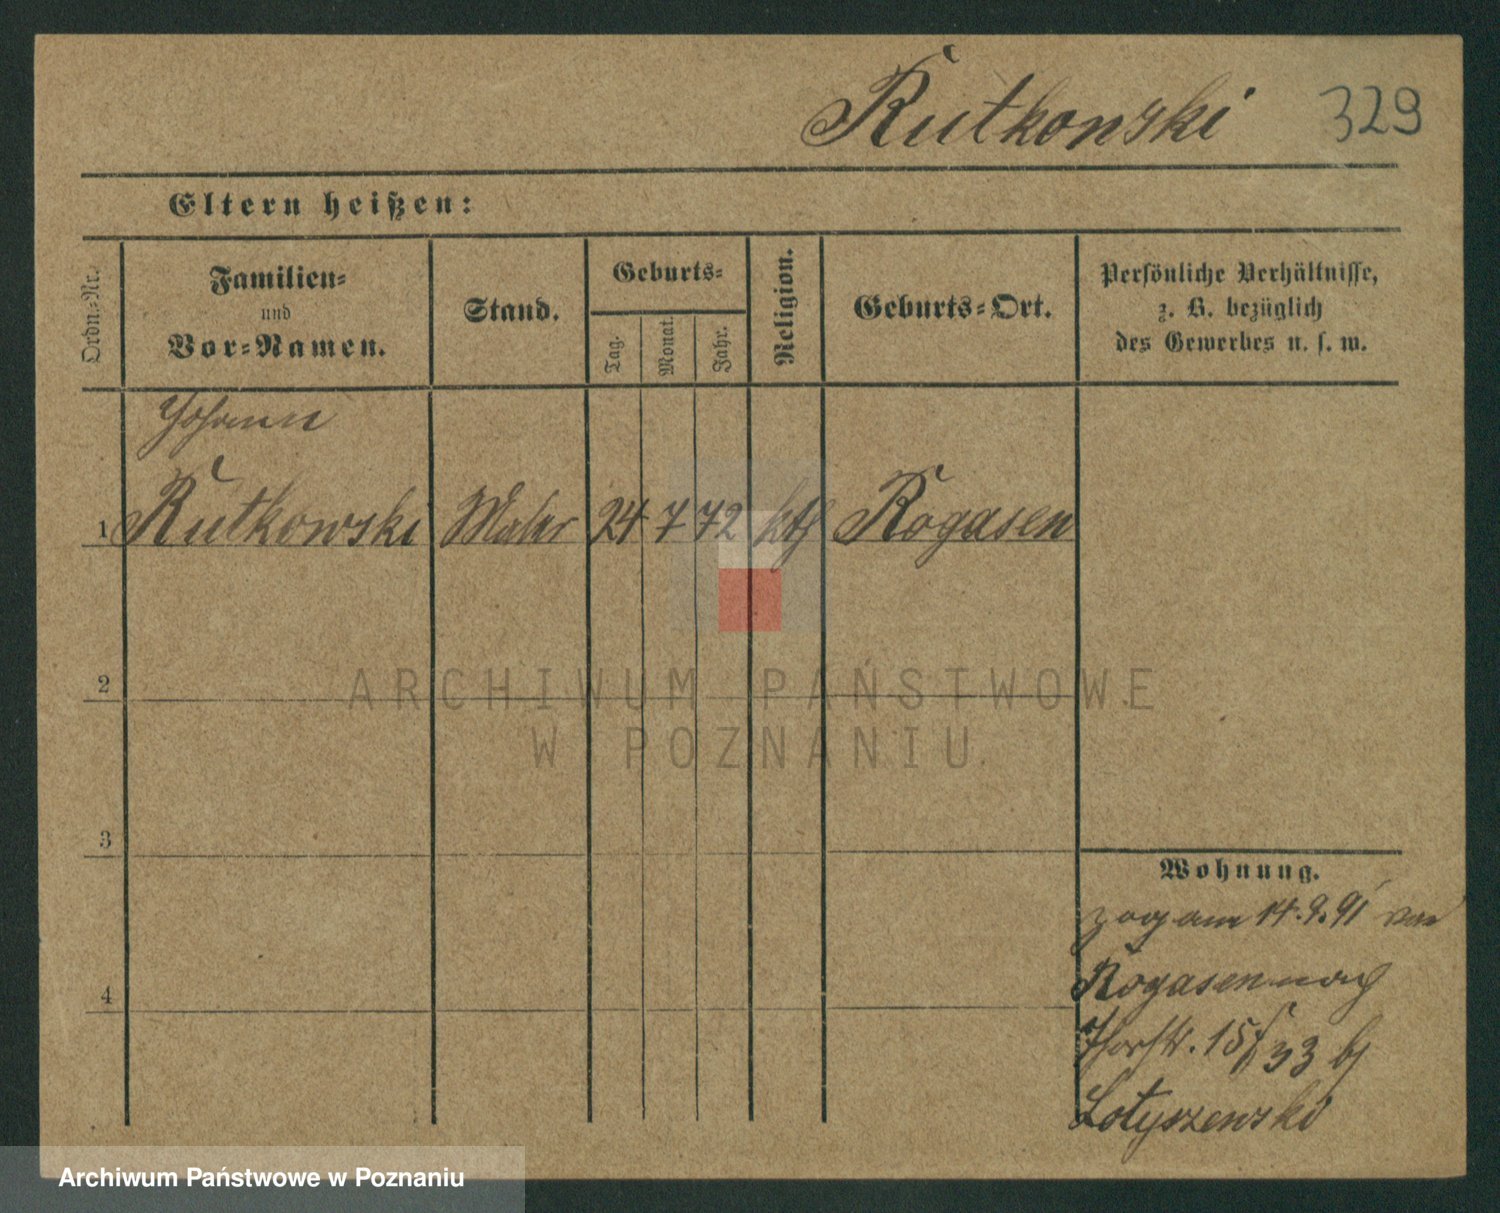 Rutkowski 329
Eltern heißen:
Ordn.-Nr.
Familien-
und
Vor-Namen.
Stand.
Geburts-
Tag.
Monat.
Jahr.
Religion.
Geburts-Ort.
Persönliche Verhältnisse,
z. B. bezüglich
des Gewerbes u. s. w.
Johann
1 Rutkowski Maler 24 7 72 kth Rogasen
2
3
4
Wohnung.
zog am 14.9.91 von
Rogasen nach
Thorstr. 15 33 bj
Lotyszewski
ARCHIWUM PAŃSTWOWE
W POZNANIU
Archiwum Państwowe w Poznaniu